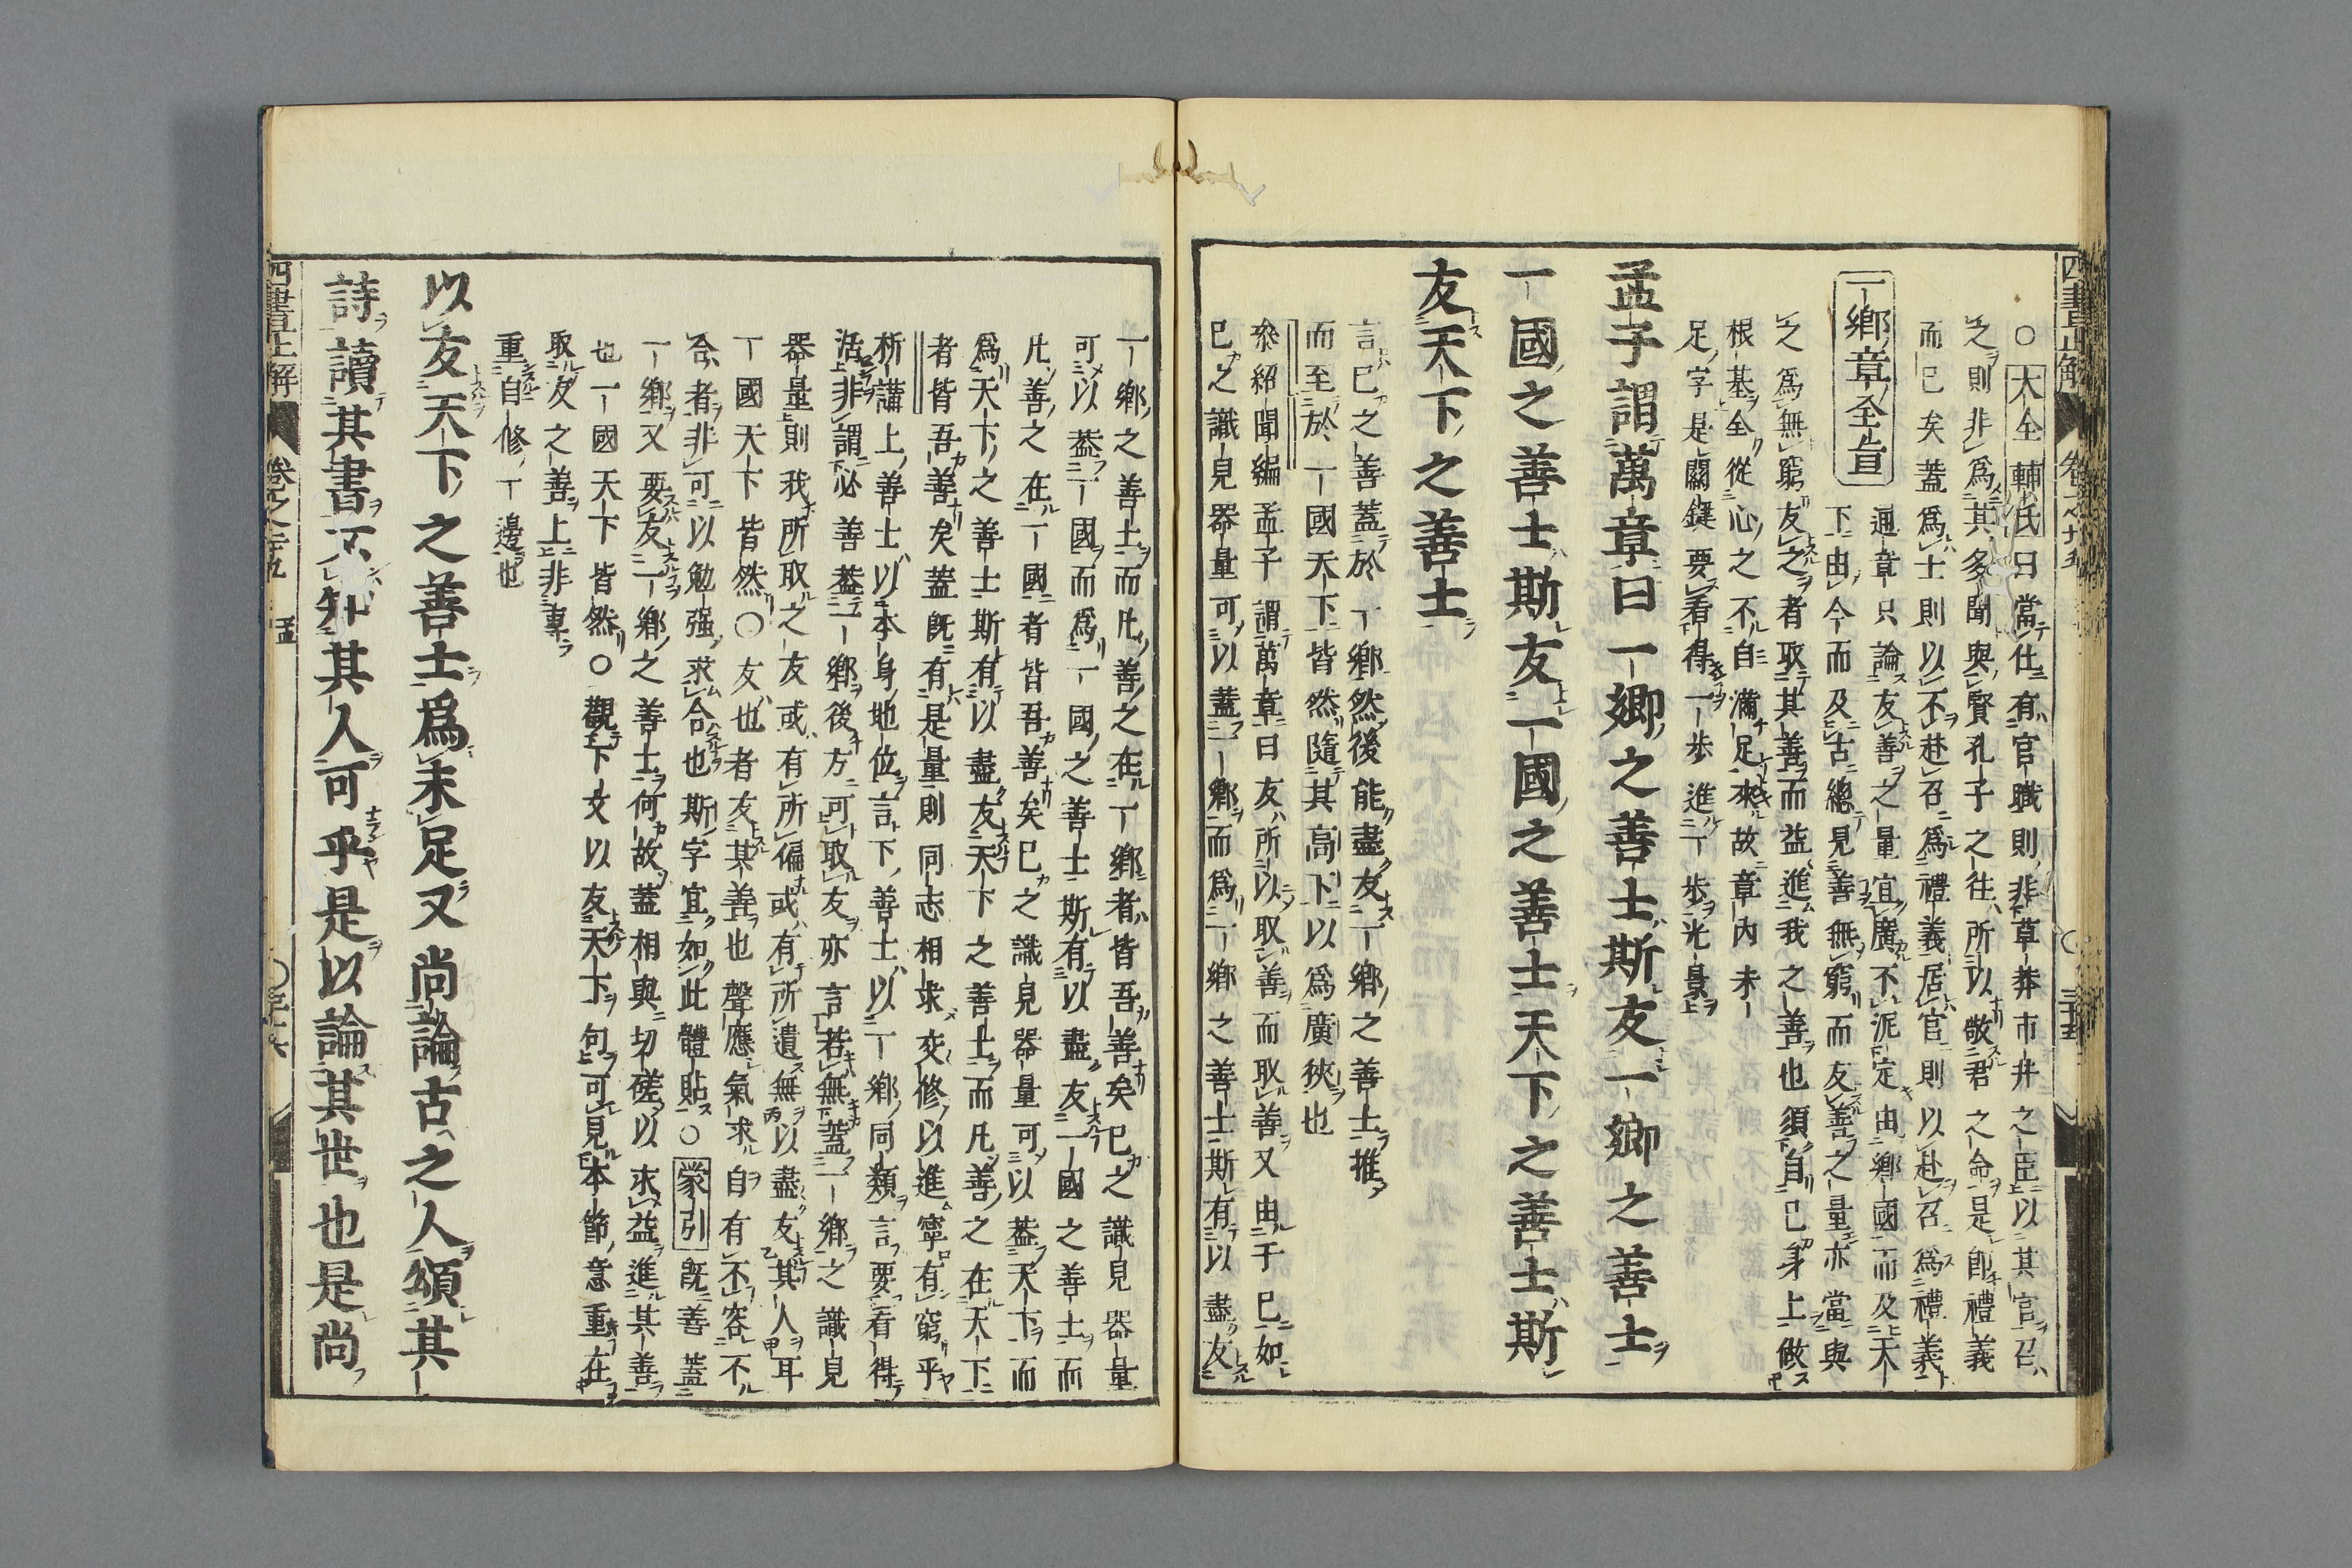 ○大全輔氏曰當仕有官職則非草莽市井之臣以其官召
之則非爲其多聞與賢孔子之往所以敬君之命是卽禮義
而已矣蓋爲士則以不赴召爲禮義居官則以赴召爲禮義
一鄉章全旨 通章只論友善之量宜廣不泥定由鄉國而及天
下由今而及古總見善無窮而友善之量亦當與
之爲無窮友之者取其善而益進我之善也須自己身上做
根基全從心之不自滿足來故章內未
足字是關鍵要看得一步進一步光景
孟子謂萬章曰一鄉之善士斯友一鄉之善士
一國之善士斯友一國之善士天下之善士斯
友天下之善士
言己之善蓋於一鄉然後能盡友一鄉之善士推
而至於一國天下皆然隨其高下以爲廣狹也
叅紹聞編孟子謂萬章曰友所以取善而取善又由于己如
已之識見器量可以蓋一鄉而爲一鄉之善士斯有以盡友
一鄉之善士而凡善之在一鄉者皆吾善矣已之識見器量
可以葢一國而爲一國之善士斯有以盡友一國之善士而
凡善之在一國者皆吾善矣已之識見器量可以葢天下而
爲天下之善士斯有以盡友天下之善士而凡善之在天下
者皆吾善矣蓋旣有是量則同志相求交修以進寧有窮乎
析講上善士以本身地位言下善士以一鄉同類言要看得
活非謂必善葢一鄉後方可取友亦言若無蓋一鄉之識見
器量則我所取之友或有所偏或有所遺無以盡友其人耳
一國天下皆然○友也者友其善也聲應氣求自有不容不
合者非可以勉强求合也斯字宜如此體貼○蒙引旣善蓋
一鄉又要友一鄉之善士何故蓋相與切磋以求益進其善
也一國天下皆然○觀下文以友天下句可見本節意重在
取友之善上非專
重自修一邊也
以友天下之善士爲未足又尚論古之人頌其
詩讀其書不知其人可乎是以論其世也是尚
四書正解 卷之廿五 三十五
四書正解 孟